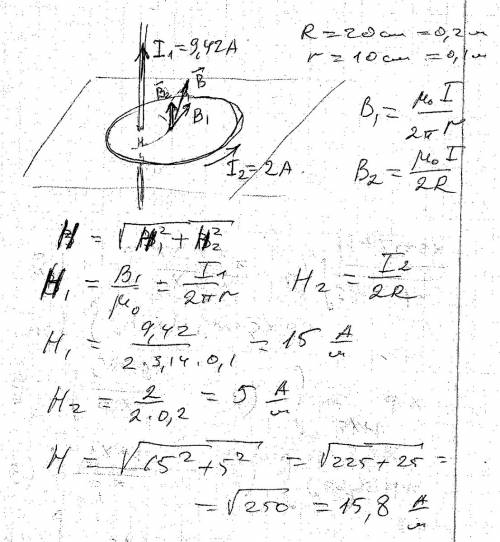 I₁=9,42A
R = 20см = 0,2м
r = 10см = 0,1м
B⃗₂ B⃗ B₁
I₂=2A
B₁ = μ₀I / 2πr
B₂ = μ₀I / 2R
H = √(H₁² + H₂²)
H₁ = B₁/μ₀ = I₁/2πr
H₂ = I₂/2R
H₁ = 9,42 / 2·3,14·0,1 = 15 А/м
H₂ = 2 / 2·0,2 = 5 А/м
H = √(15² + 5²) = √(225 + 25) =
= √250 = 15,8 А/м